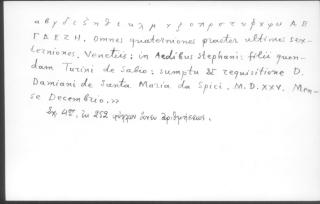 α β γ δ ε ζ η θ ι κ λ μ ν ξ ο π ρ σ τ υ φ χ ψ ω Α Β
Γ Δ Ε Ζ Η. Omnes quaterniones praeter ultimos sex-
terniones. Venetiis; in Aedibus Stephani: filii quon-
dam Turini de Sabio; sumptu & requisitione D.
Damiani de Santa Maria da Spici. M.D.XXV. Men-
se Decembrio.>>
Σχ. 4ον. ἐκ 252 φύλλων ἄνευ ἀριθμήσεως.